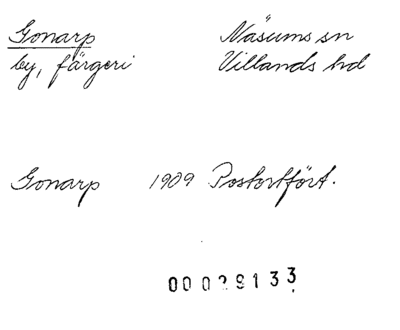 Gonarp Näsums sn
by, färgeri Villands hd
Gonarp 1909 Postortfört.
00029133